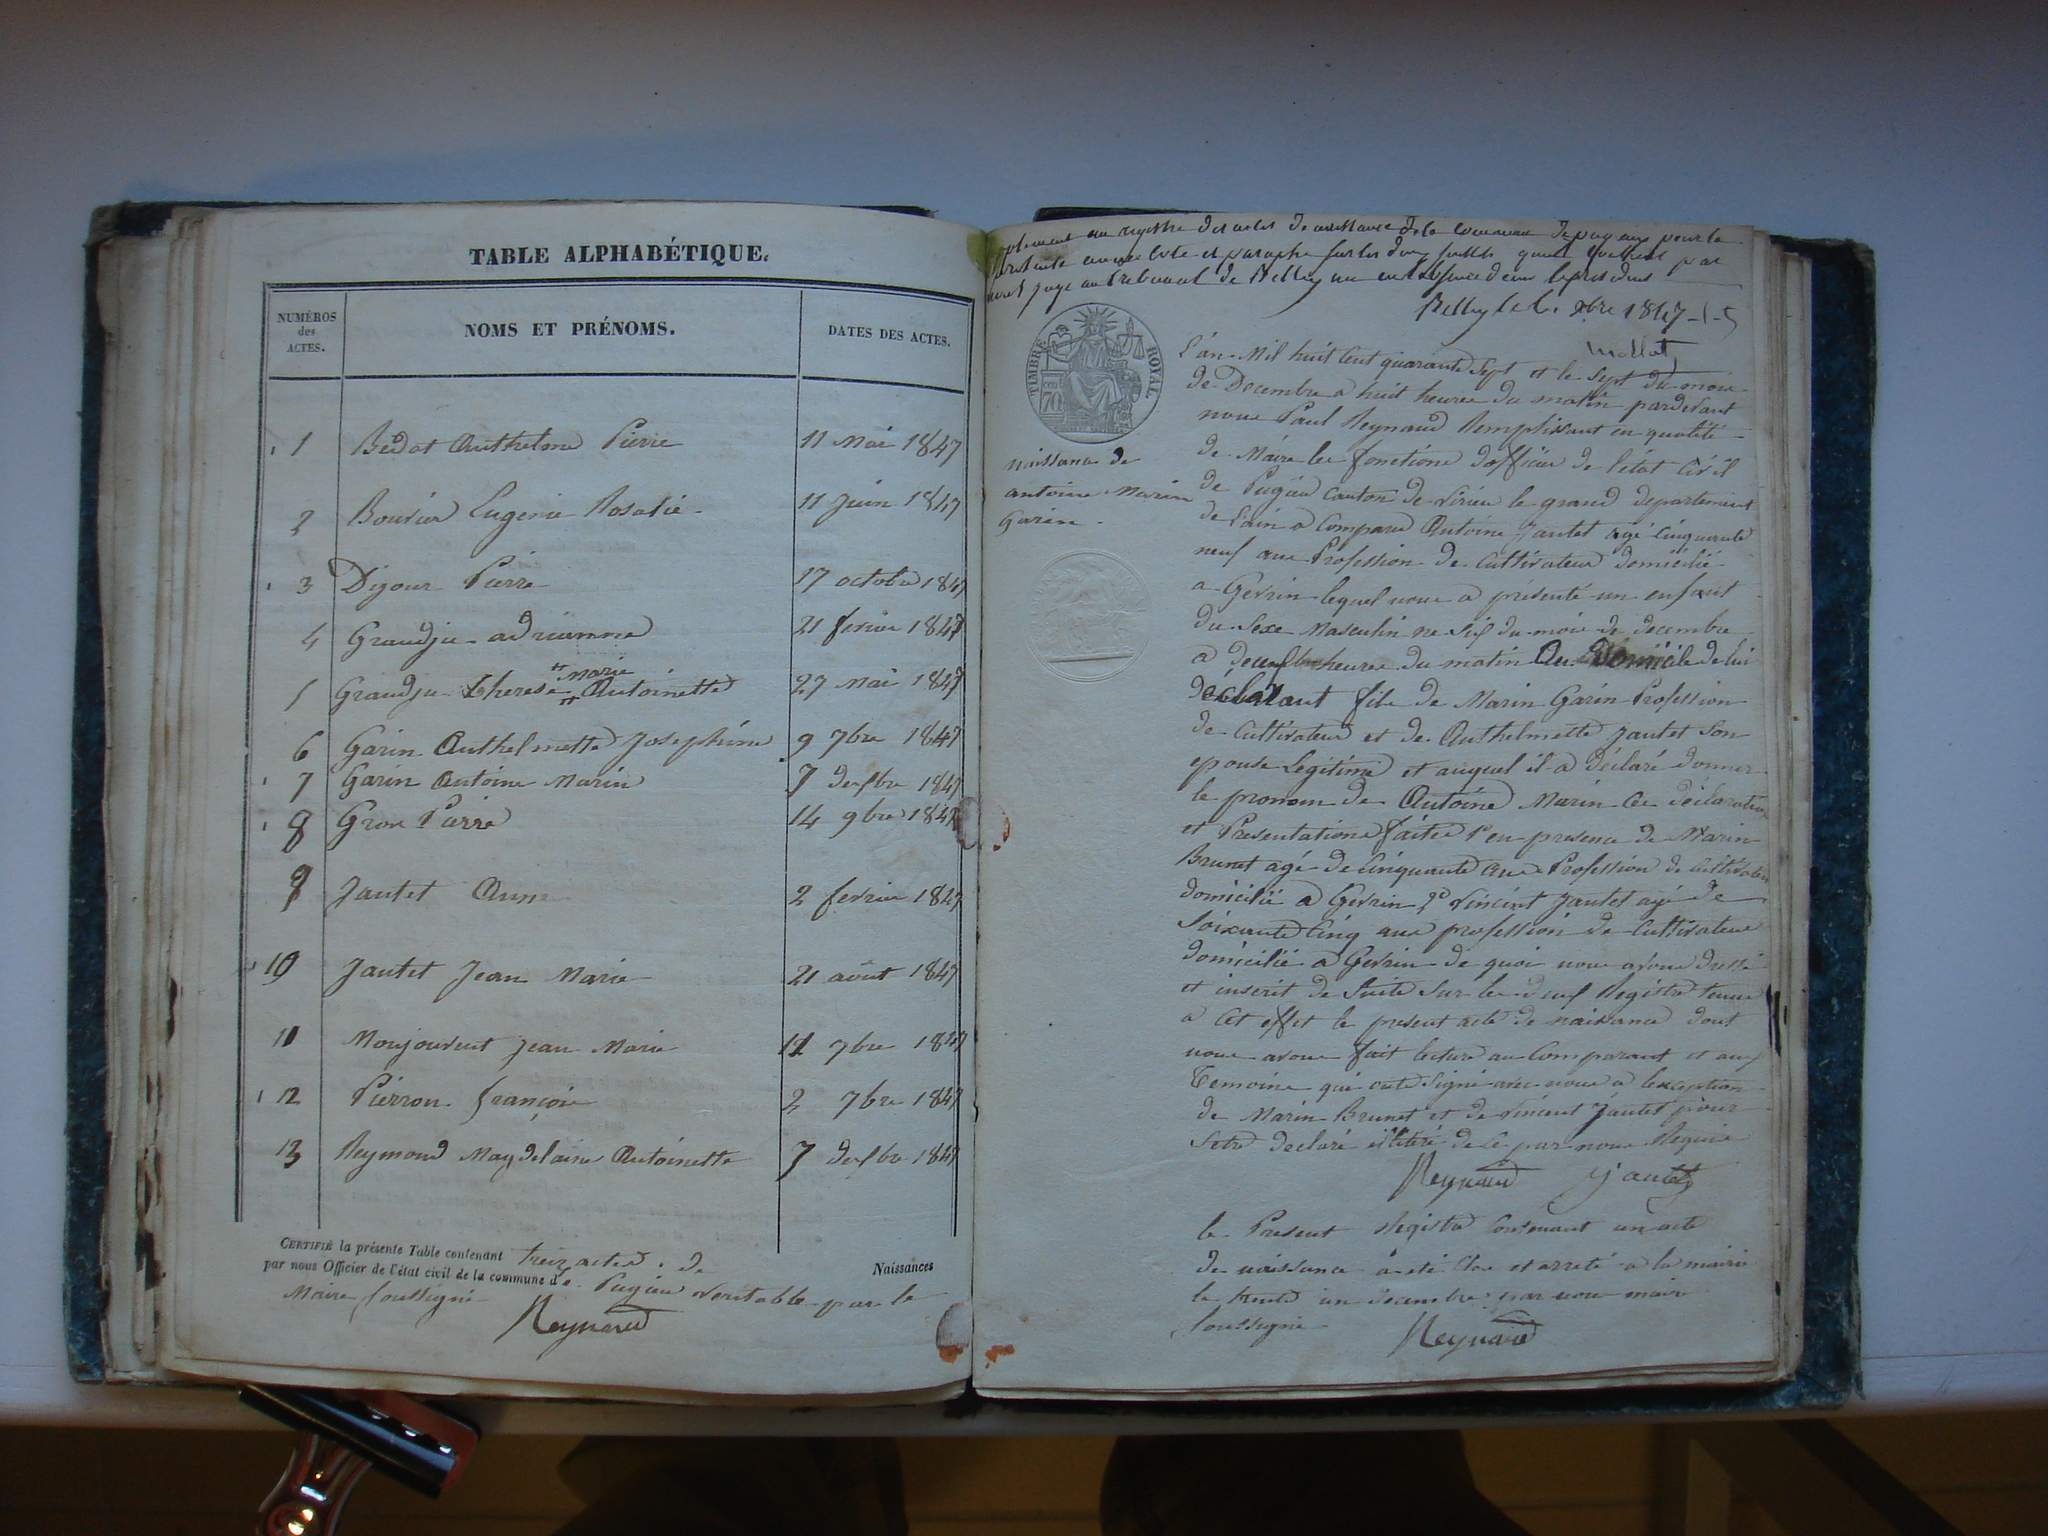 TABLE ALPHABÉTIQUE.
NUMÉROS des ACTES. NOMS ET PRÉNOMS. DATES DES ACTES.
1 Bédat Anthelme Pierre 11 Mai 1847
2 Bouvier Eugenie Rosalie 11 Juin 1847
3 Digour Pierre 17 octobre 1847
4 Grandju adrienne 21 fevrier 1847
5 Grandju therese marie Antoinette 27 Mai 1847
6 Garin Anthelmette Josephine 9 7bre 1847
7 Garin Antoine Marin 7 1847
8 Gros Pierre 14 9bre 1847
9 Jantet Anne 2 fevrier 1847
10 Jantet Jean Marie 21 août 1847
11 Monjouvent Jean Marie 11 7bre 1847
12 Pierron françois 2 7bre 1847
13 Reymond Magdelaine Antoinette 7 1847
CERTIFIÉ la présente Table contenant treiz actes de Naissances
par nous Officier de l'état civil de la commune de Pugieu veritable par le
Maire soussigné
Reynaud
au registre des actes de naissance de la commune de pour la
présente année coté et paraphé par
juge au tribunal de Belley
Belley le 6. Xbre 1847
TIMBRE ROYAL
70
L'an Mil huit Cent quarante Sept et le Sept du mois
de Decembre a huit heures du matin pardevant
nous Paul Reynaud Remplissant en qualité
de Maire les fonctions d'officier de l'état Civil
naissance de
antoine Marin
Garin
de Pugieu Canton de virieu le grand departement
de l'ain a Comparu Antoine Jantet agé Cinquante
neuf ans Profession de Cultivateur domicilié
a Gevrin lequel nous a présenté un enfant
du Sexe Masculin ne Six du mois de decembre
a heures du matin Au Domicile de lui
déclarant fils de Marin Garin Profession
de Cultivateur et de Anthelmette Jantet Son
epouse Legitime et auquel il a déclaré donner
le pronom de Antoine Marin Ces déclaration
et Presentations faites en presence de Marin
Brunet agé de Cinquante ans Profession de Cultivateur
domicilié a Gevrin 2º vincent Jantet agé de
Soixante Cinq ans profession de Cultivateur
domicilié a Gevrin de quoi nous avons dressé
et inscrit de Suite Sur les deux Registre tenus
a Cet effet le present acte de naissance dont
nous avons fait lecture au Comparant et aux
Temoins qui ont Signé avec nous a l'exception
de Marin Brunet et de vincent Jantet pour
Setre declaré illitéré de Ce par nous Requis
Reynaud Jantet
le Present Registre Contenant un acte
de naissance a eté Clos et arreté a la mairie
le trente un decembre par nous maire
soussigné
Reynaud